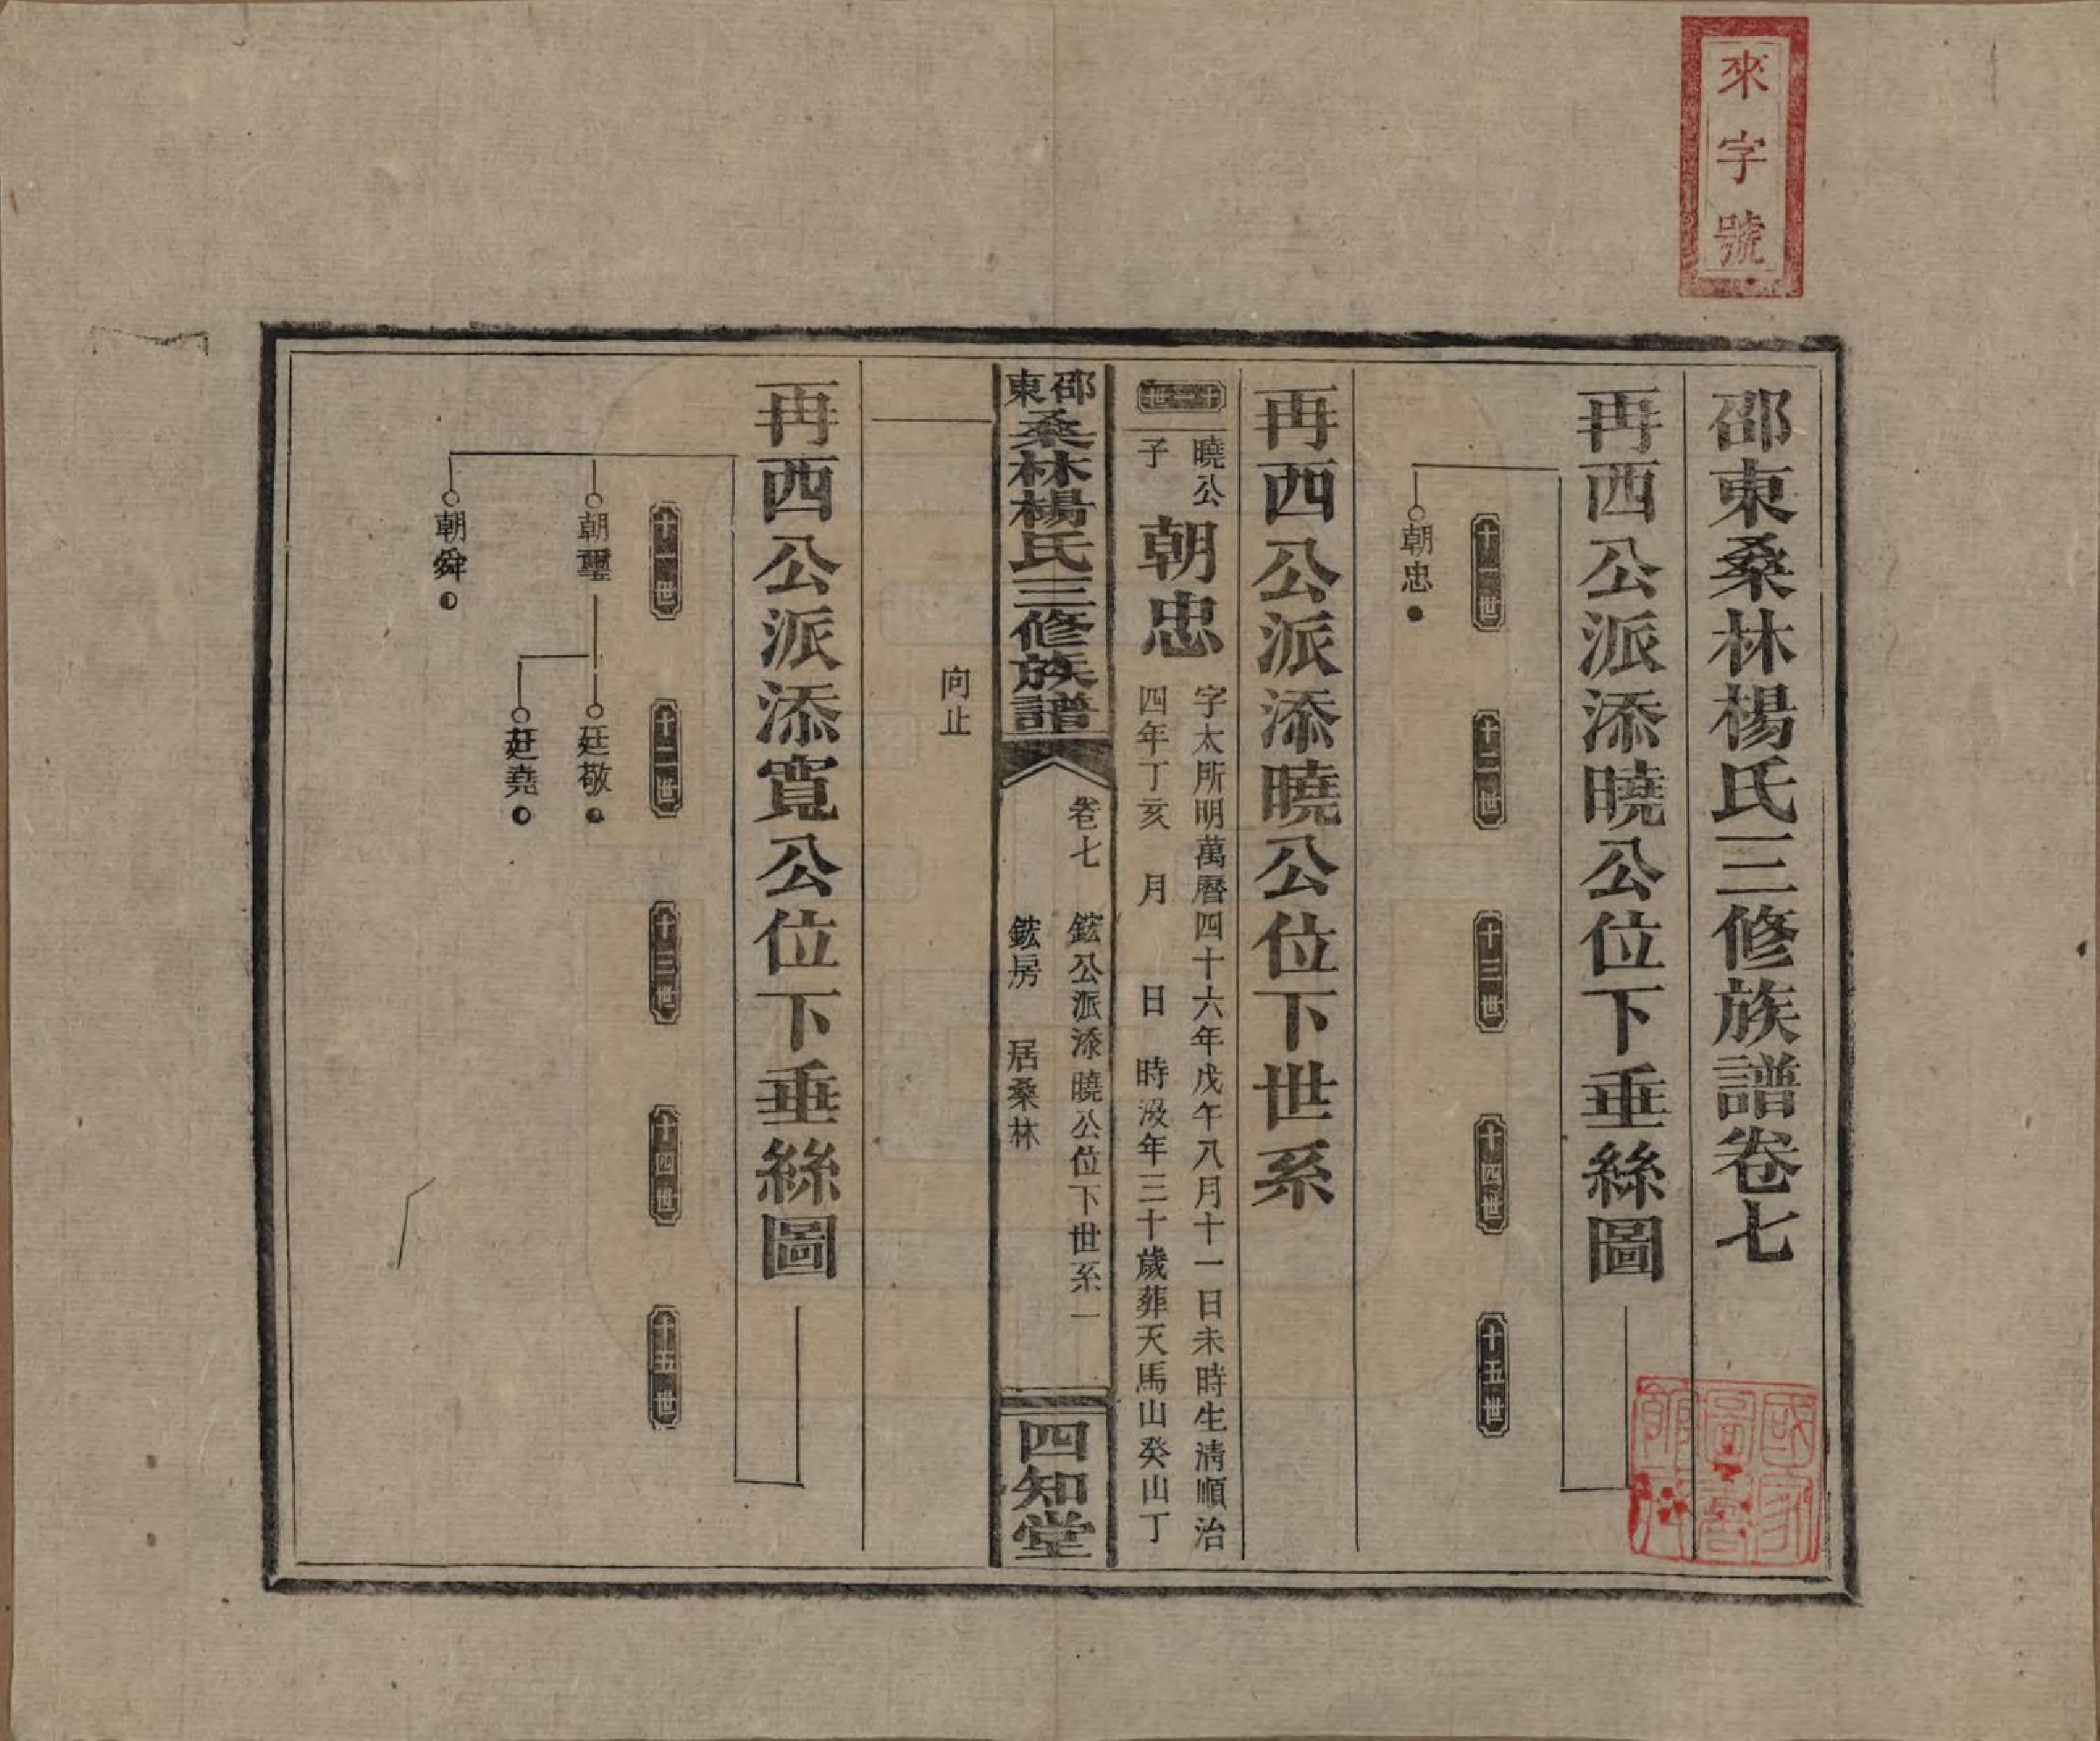 來字號
邵東桑林楊氏三修族譜卷七
國家圖書館藏
再西公派添曉公位下垂絲圖
十一世
十二世
十三世
十四世
十五世
朝忠
再西公派添曉公位下世系
十一世
曉公
子
朝忠
字太所明萬曆四十六年戊午八月十一日未時生清順治
四年丁亥 月 日 時歿年三十歲葬天馬山癸山丁
邵東桑林楊氏三修族譜
卷七 鋐公派添曉公位下世系一
鋐房 居桑林
四知堂
向止
再西公派添寬公位下垂絲圖
十一世
十二世
十三世
十四世
十五世
朝璽
廷敬
廷堯
朝舜